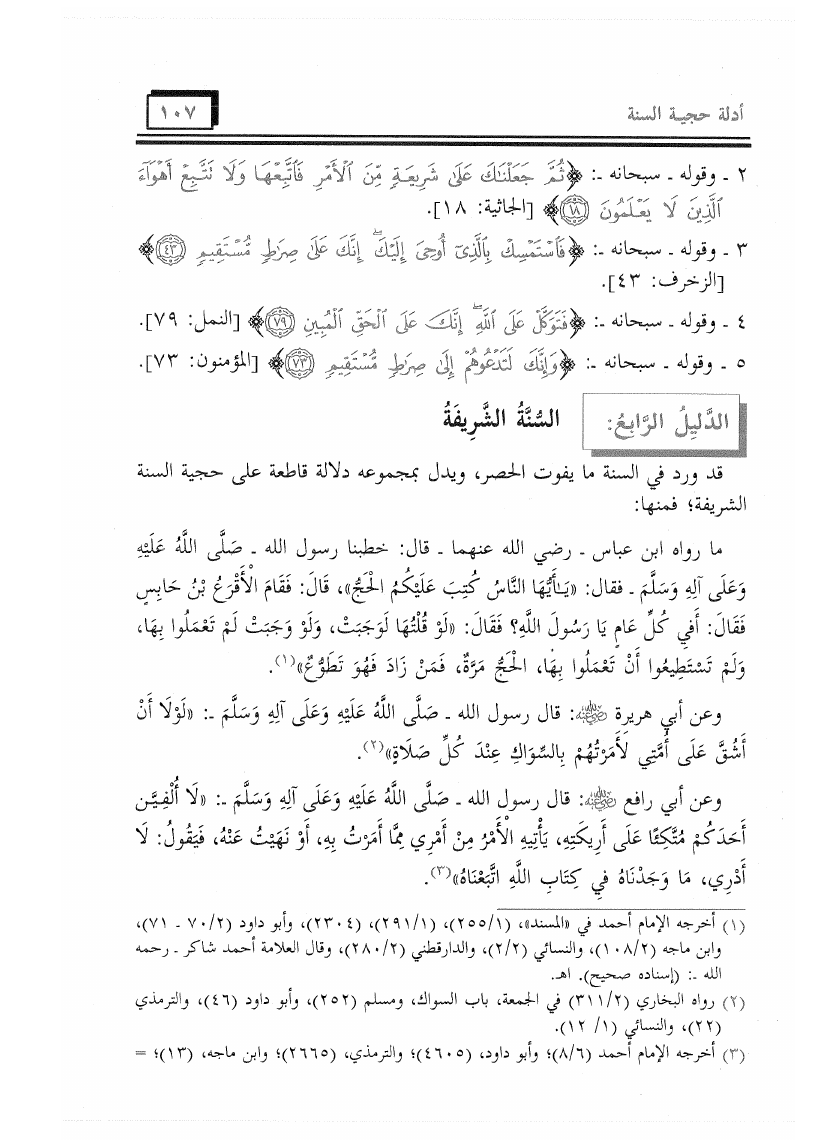 أدلة حجية السنة
١٠٧
٢ ـ وقوله ـ سبحانه ـ: ﴿ثُمَّ جَعَلْنَاكَ عَلَىٰ شَرِيعَةٍ مِّنَ ٱلْأَمْرِ فَٱتَّبِعْهَا وَلَا تَتَّبِعْ أَهْوَآءَ
ٱلَّذِينَ لَا يَعْلَمُونَ ﴿١٨﴾﴾ [الجاثية: ١٨].
٣ ـ وقوله ـ سبحانه ـ: ﴿فَٱسْتَمْسِكْ بِٱلَّذِىٓ أُوحِىَ إِلَيْكَ ۖ إِنَّكَ عَلَىٰ صِرَٰطٍ مُّسْتَقِيمٍ ﴿٤٣﴾﴾
[الزخرف: ٤٣].
٤ ـ وقوله ـ سبحانه ـ: ﴿فَتَوَكَّلْ عَلَى ٱللَّهِ ۖ إِنَّكَ عَلَى ٱلْحَقِّ ٱلْمُبِينِ ﴿٧٩﴾﴾ [النمل: ٧٩].
٥ ـ وقوله ـ سبحانه ـ: ﴿وَإِنَّكَ لَتَدْعُوهُمْ إِلَىٰ صِرَٰطٍ مُّسْتَقِيمٍ ﴿٧٣﴾﴾ [المؤمنون: ٧٣].
الدَّلِيلُ الرَّابِعُ: السُّنَّةُ الشَّرِيفَةُ
قد ورد في السنة ما يفوت الحصر، ويدل بمجموعه دلالة قاطعة على حجية السنة
الشريفة؛ فمنها:
ما رواه ابن عباس ـ رضي الله عنهما ـ قال: خطبنا رسول الله ـ صَلَّى اللَّهُ عَلَيْهِ
وَعَلَى آلِهِ وَسَلَّمَ ـ فقال: «يَـٰأَيُّهَا النَّاسُ كُتِبَ عَلَيْكُمُ الْحَجُّ»، قَالَ: فَقَامَ الْأَقْرَعُ بْنُ حَابِسٍ
فَقَالَ: أَفِي كُلِّ عَامٍ يَا رَسُولَ اللَّهِ؟ فَقَالَ: «لَوْ قُلْتُهَا لَوَجَبَتْ، وَلَوْ وَجَبَتْ لَمْ تَعْمَلُوا بِهَا،
وَلَمْ تَسْتَطِيعُوا أَنْ تَعْمَلُوا بِهَا، الْحَجُّ مَرَّةٌ، فَمَنْ زَادَ فَهُوَ تَطَوُّعٌ»(١).
وعن أبي هريرة ﵁: قال رسول الله ـ صَلَّى اللَّهُ عَلَيْهِ وَعَلَى آلِهِ وَسَلَّمَ ـ: «لَوْلَا أَنْ
أَشُقَّ عَلَى أُمَّتِي لَأَمَرْتُهُمْ بِالسِّوَاكِ عِنْدَ كُلِّ صَلَاةٍ»(٢).
وعن أبي رافع ﵁: قال رسول الله ـ صَلَّى اللَّهُ عَلَيْهِ وَعَلَى آلِهِ وَسَلَّمَ ـ: «لَا أُلْفِيَنَّ
أَحَدَكُمْ مُتَّكِئًا عَلَى أَرِيكَتِهِ، يَأْتِيهِ الْأَمْرُ مِنْ أَمْرِي مِمَّا أَمَرْتُ بِهِ، أَوْ نَهَيْتُ عَنْهُ، فَيَقُولُ: لَا
أَدْرِي، مَا وَجَدْنَاهُ فِي كِتَابِ اللَّهِ اتَّبَعْنَاهُ»(٣).
(١) أخرجه الإمام أحمد في «المسند»، (١/٢٥٥)، (١/٢٩١)، (٢٣٠٤)، وأبو داود (٢/٧٠ ـ ٧١)،
وابن ماجه (٢/١٠٨)، والنسائي (٢/٢)، والدارقطني (٢/٢٨٠)، وقال العلامة أحمد شاكر ـ رحمه
الله ـ: (إسناده صحيح). اهـ.
(٢) رواه البخاري (٢/٣١١) في الجمعة، باب السواك، ومسلم (٢٥٢)، وأبو داود (٤٦)، والترمذي
(٢٢)، والنسائي (١/ ١٢).
(٣) أخرجه الإمام أحمد (٦/٨)؛ وأبو داود، (٤٦٠٥)؛ والترمذي، (٢٦٦٥)؛ وابن ماجه، (١٣)؛ =